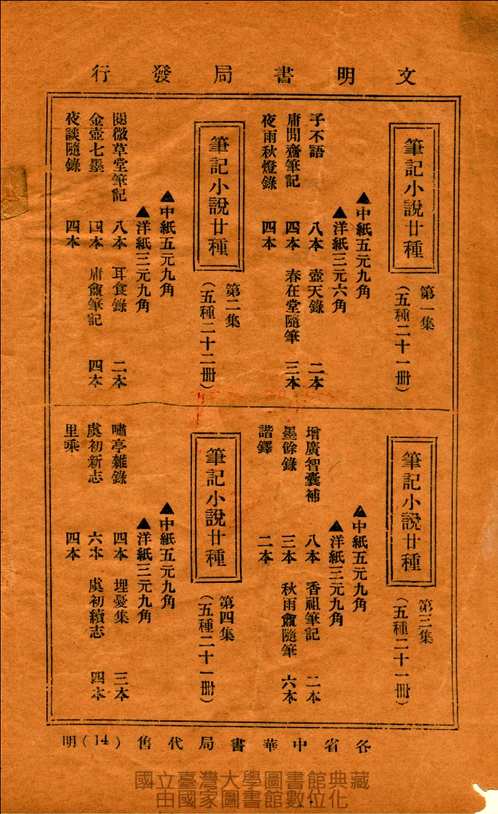 文明書局發行
筆記小說廿種
第一集
(五種二十一冊)
▲中紙五元九角
▲洋紙三元六角
子不語 八本 壺天錄 二本
庸閒齋筆記 四本 春在堂隨筆 三本
夜雨秋燈錄 四本
筆記小說廿種
第二集
(五種二十二冊)
▲中紙五元九角
▲洋紙三元九角
閱微草堂筆記 八本 耳食錄 二本
金壺七墨 四本 庸盦筆記 四本
夜談隨錄 四本
筆記小說廿種
第三集
(五種二十一冊)
▲中紙五元九角
▲洋紙三元九角
增廣智囊補 八本 香祖筆記 二本
墨餘錄 三本 秋雨盦隨筆 六本
諧鐸 二本
筆記小說廿種
第四集
(五種二十一冊)
▲中紙五元九角
▲洋紙三元九角
嘯亭雜錄 四本 埋憂集 三本
虞初新志 六本 虞初續志 四本
里乘 四本
各省中華書局代售 (14) 明
國立臺灣大學圖書館典藏
由國家圖書館數位化